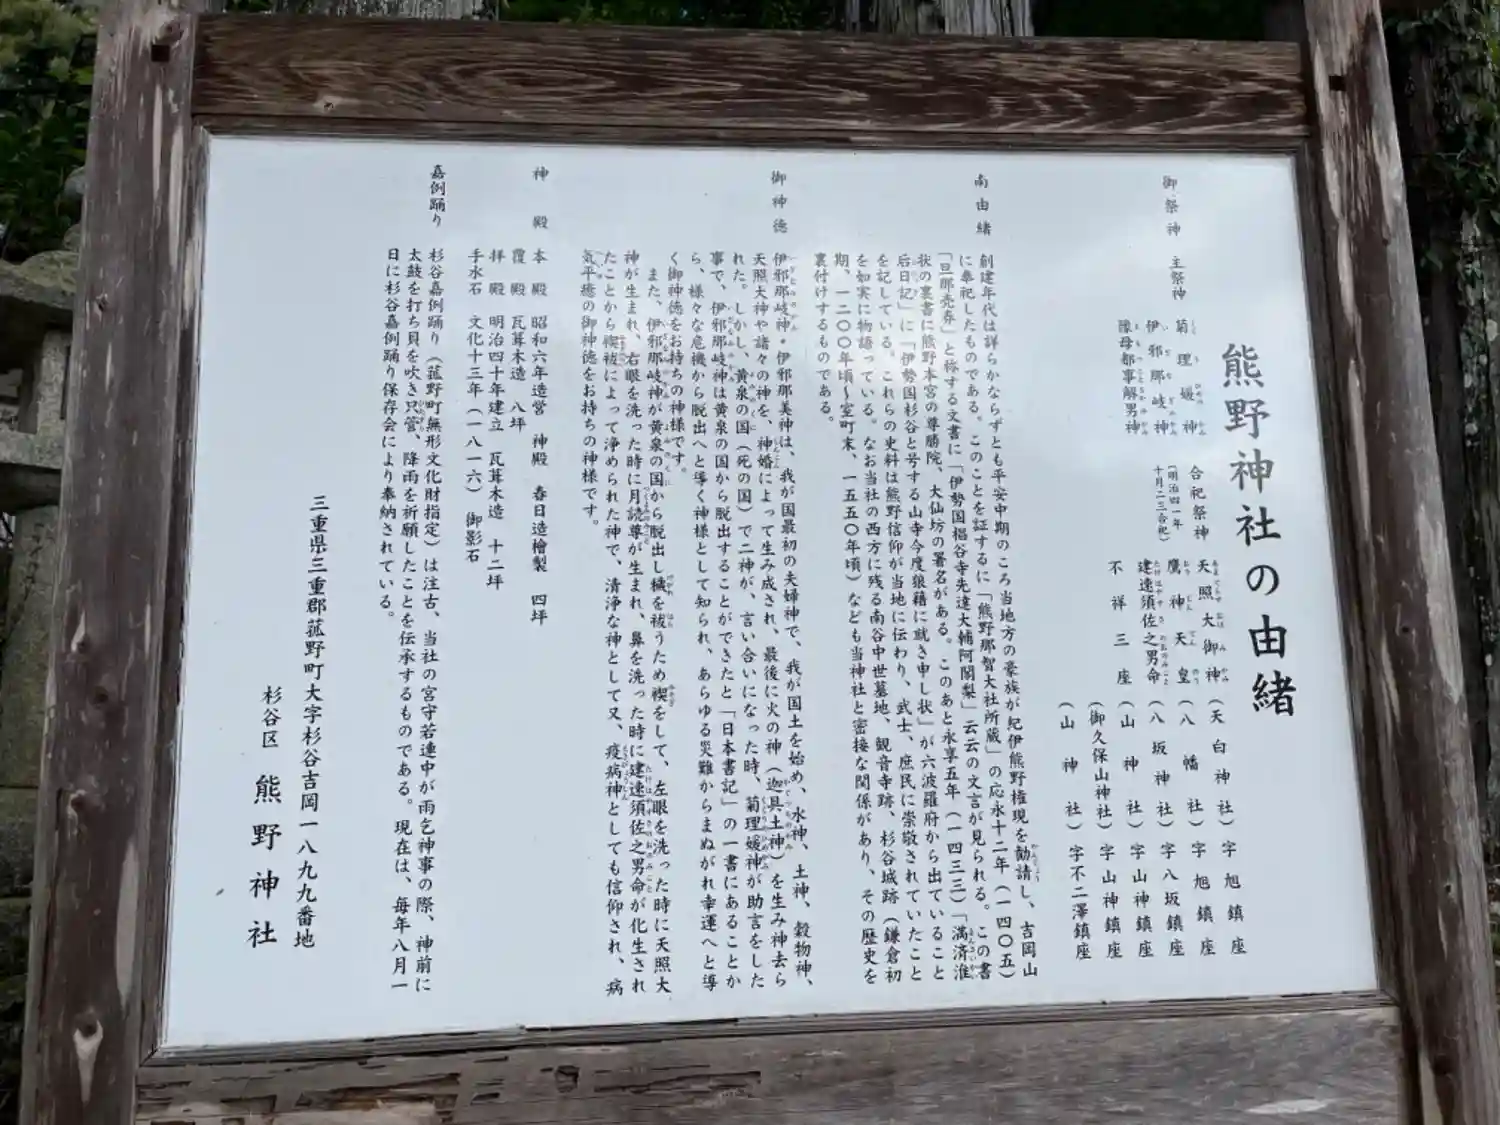 熊野神社の由緒
御祭神 主祭神 菊理媛神 合祀祭神 天照大御神(天白神社)字旭鎮座
伊邪那岐神 (明治四一年 鷹神天皇(八幡社)字旭鎮座
豫母都事解男神 十月二三合祀) 建速須佐之男命(八坂神社)字八坂鎮座
不祥三座(山神社)字山神鎮座
(御久保山神社)字山神鎮座
(山神社)字不二澤鎮座
南由緒
創建年代は詳らかならずとも平安中期のころ当地方の豪族が紀伊熊野権現を勧請し、吉岡山
に奉祀したものである。このことを証するに「熊野那智大社所蔵」の応永十二年(一四〇五)
「旦那売券」と称する文書に「伊勢国椙谷寺先達大輔阿闍梨」云云の文言が見られる。この書
状の裏書に熊野本宮の尊勝院、大仙坊の署名がある。このあと永享五年(一四三三)「満済淮
后日記」に「伊勢国杉谷と号する山寺今度狼籍に就き申し状」が六波羅府から出ていること
を記している。これらの史料は熊野信仰が当地に伝わり、武士、庶民に崇敬されていたこと
を如実に物語っている。なお当社の西方に残る南谷中世墓地、観音寺跡、杉谷城跡(鎌倉初
期、一二〇〇年頃~室町末、一五五〇年頃)なども当神社と密接な関係があり、その歴史を
裏付けするものである。
御神徳
伊邪那岐神・伊邪那美神は、我が国最初の夫婦神で、我が国土を始め、水神、土神、穀物神、
天照大神や諸々の神を、神婚によって生み成され、最後に火の神(迦具土神)を生み神去ら
れた。しかし、黄泉の国(死の国)で二神が、言い合いになった時、菊理媛神が助言をした
事で、伊邪那岐神は黄泉の国から脱出することができたと「日本書記」の一書にあることか
ら、様々な危機から脱出へと導く神様として知られ、あらゆる災難からまぬがれ幸運へと導
く御神徳をお持ちの神様です。
また、伊邪那岐神が黄泉の国から脱出し穢を祓うため禊をして、左眼を洗った時に天照大
神が生まれ、右眼を洗った時に月読尊が生まれ、鼻を洗った時に建速須佐之男命が化生され
たことから禊祓によって浄められた神で、清浄な神として又、疫病神としても信仰され、病
気平癒の御神徳をお持ちの神様です。
神殿 本殿 昭和六年造営 神殿 春日造檜製 四坪
覆殿 瓦葺木造 八坪
拝殿 明治四十年建立 瓦葺木造 十二坪
手水石 文化十三年(一八一六) 御影石
嘉例踊り 杉谷嘉例踊り(菰野町無形文化財指定)は注古、当社の宮守若連中が雨乞神事の際、神前に
太鼓を打ち貝を吹き只管、降雨を祈願したことを伝承するものである。現在は、毎年八月一
日に杉谷嘉例踊り保存会により奉納されている。
三重県三重郡菰野町大字杉谷吉岡一八九九番地
杉谷区 熊野神社